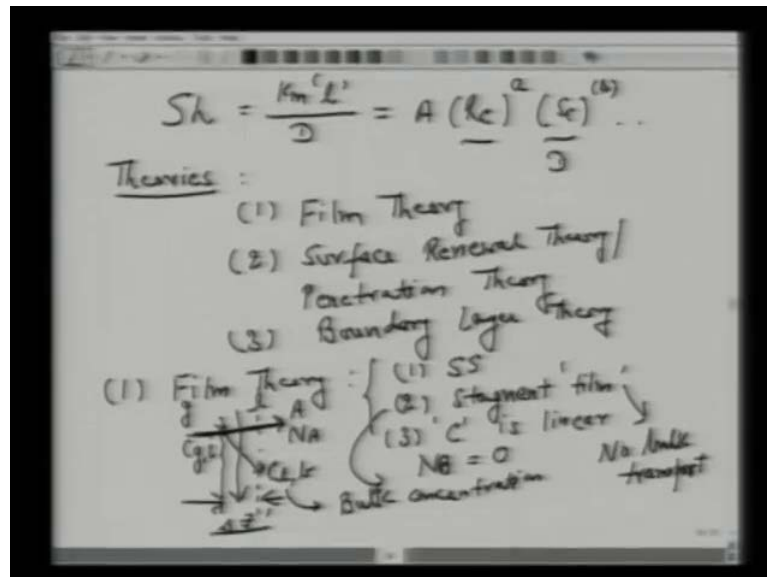 Sh = Km 'l' / D = A (Re)^a (Sc)^(b) ...
D
Theories :
(1) Film Theory
(2) Surface Renewal Theory/
Penetration Theory
(3) Boundary Layer Theory
(1) Film Theory : (1) SS
(2) Stagnent 'film'
(3) 'C' is linear
NB = 0
No bulk
transport
g l A
NA
Bulk concentration